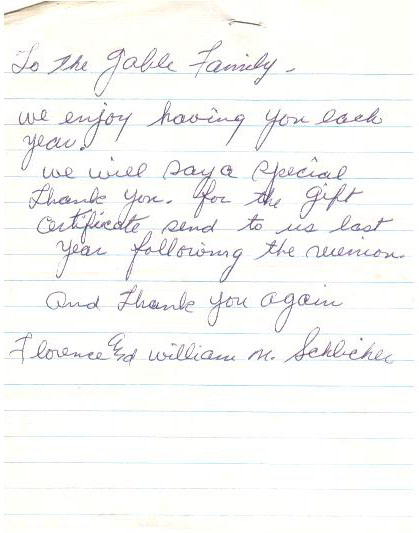 To the Gable Family -
we enjoy having you each
year.
we will say a special
thank you. for the gift
certificate send to us last
year following the reunion.
And thank you again
Florence and william M. Schlicher